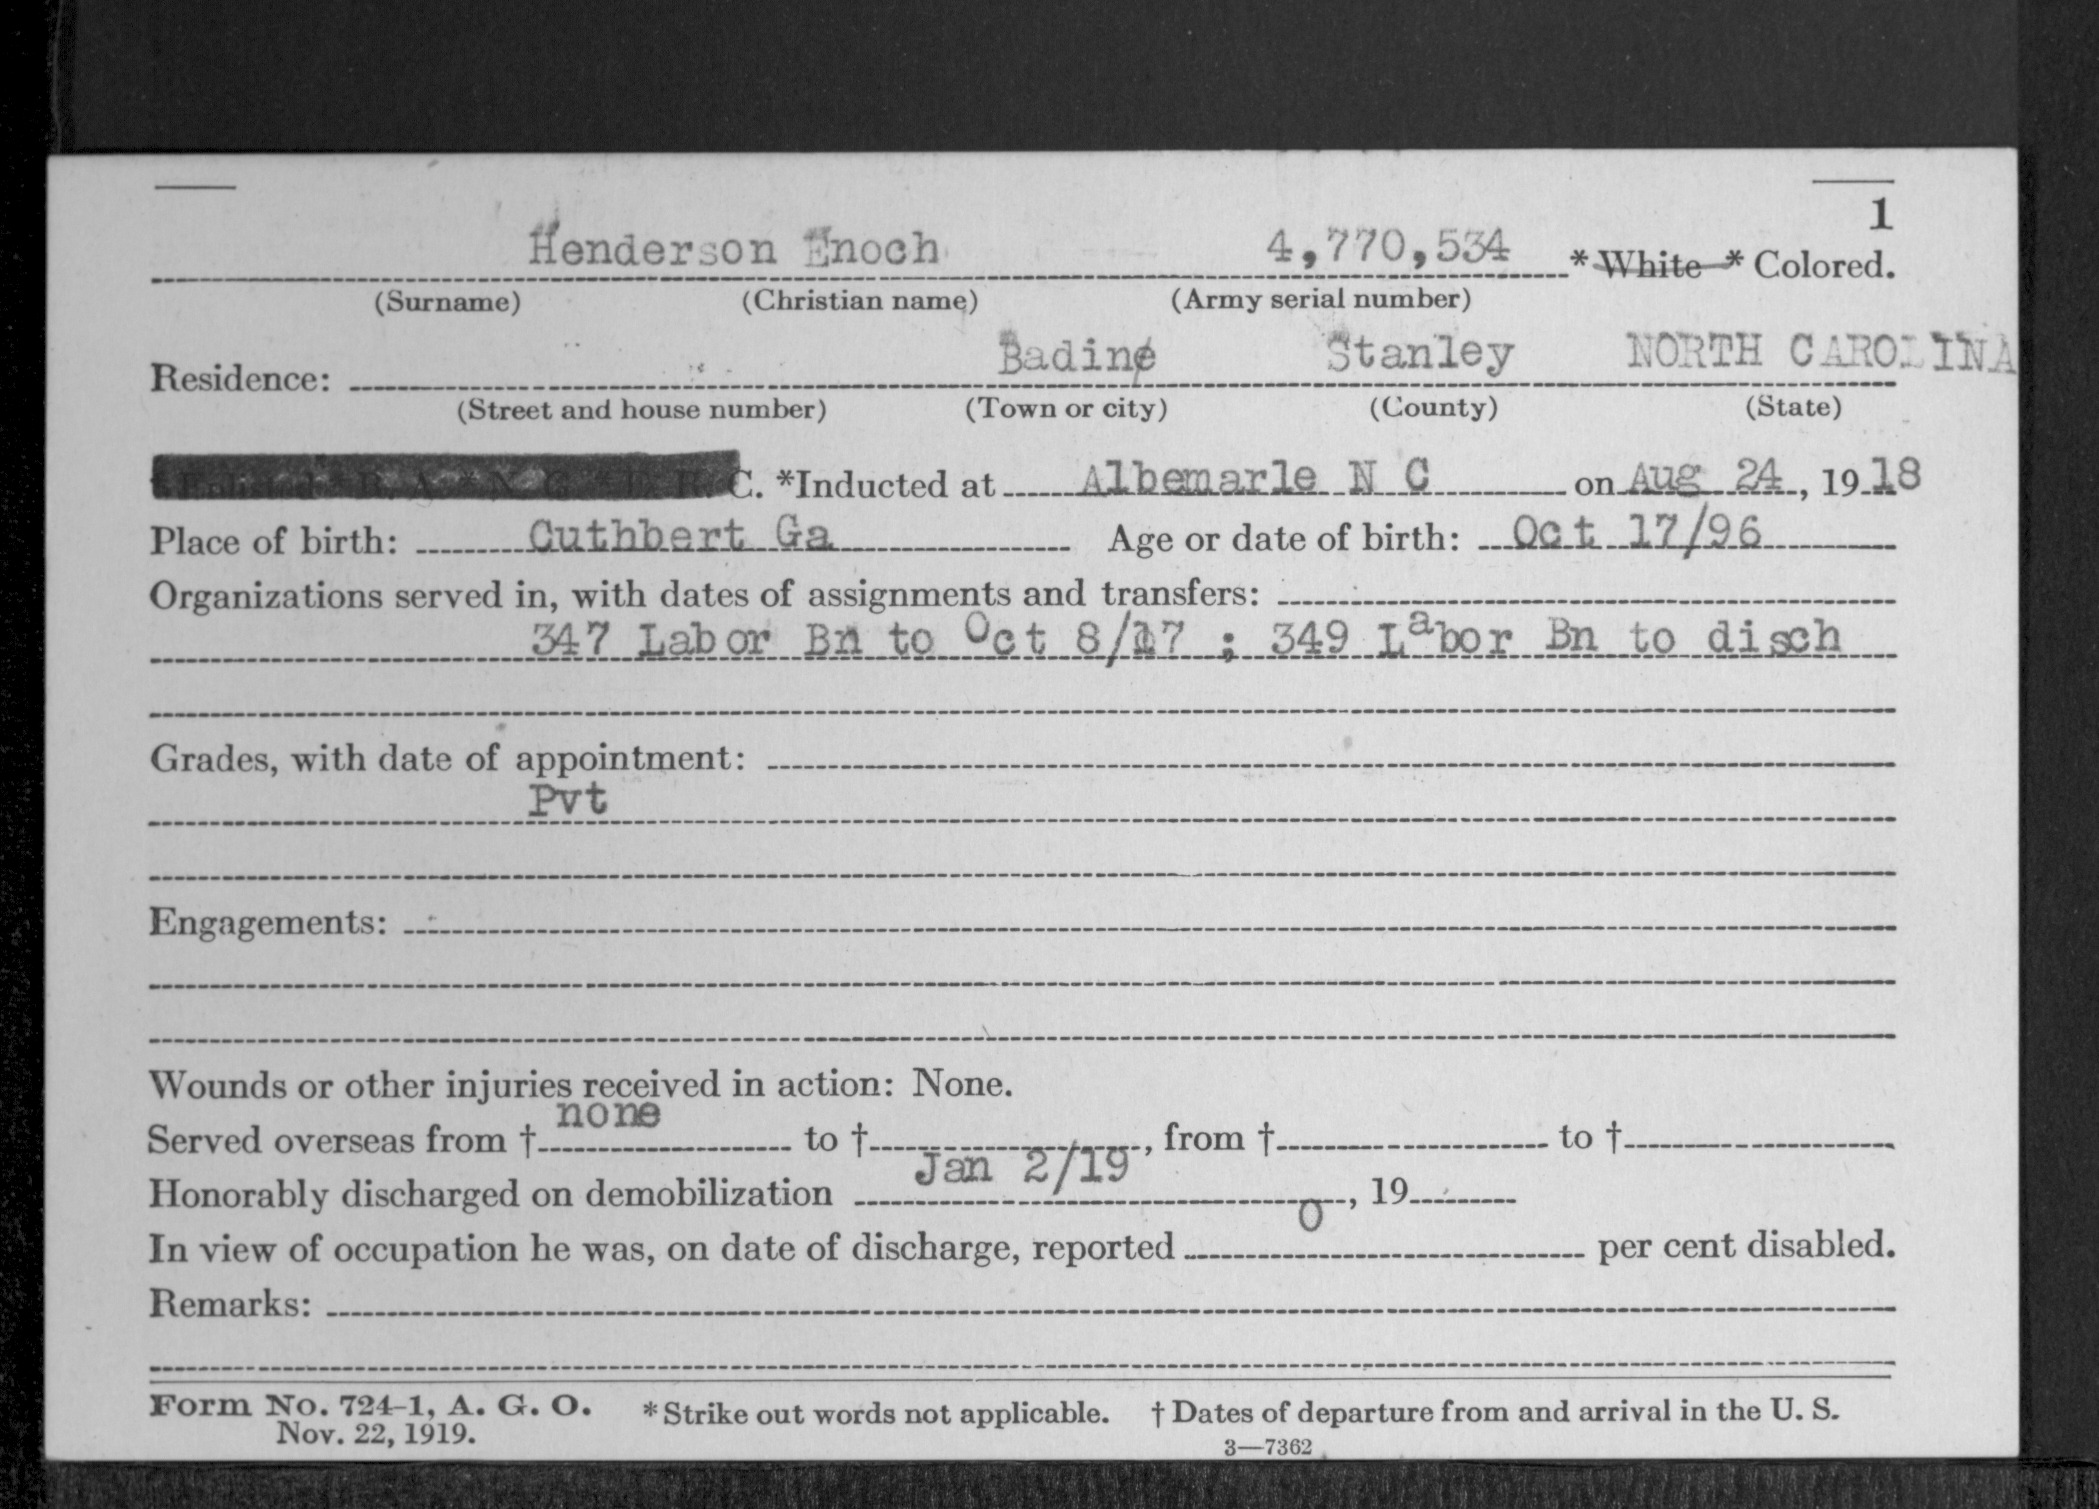 1
Henderson Enoch 4,770,534 * White * Colored.
(Surname) (Christian name) (Army serial number)
Residence: Badin Stanley NORTH CAROLINA
(Street and house number) (Town or city) (County) (State)
* Enlisted * R. A. * N. G. * E. R. C. *Inducted at Albemarle N C on Aug 24, 1918
Place of birth: Cuthbert Ga Age or date of birth: Oct 17/96
Organizations served in, with dates of assignments and transfers:
347 Labor Bn to Oct 8/17 ; 349 Labor Bn to disch
Grades, with date of appointment:
Pvt
Engagements:
Wounds or other injuries received in action: None.
none
Served overseas from † to †, from † to †
Jan 2/19
Honorably discharged on demobilization , 19
0
In view of occupation he was, on date of discharge, reported per cent disabled.
Remarks:
Form No. 724-1, A. G. O. * Strike out words not applicable. † Dates of departure from and arrival in the U. S.
Nov. 22, 1919.
3—7362